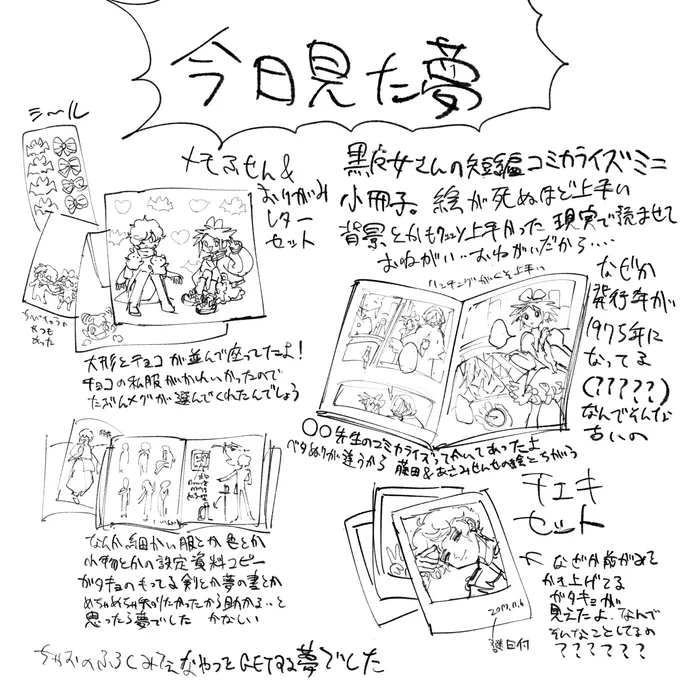 今日見た夢
シール
メモふせん&
おりがみ
レター
セット
ちびキャラの
やつも
あった
大形とチョコが並んで座ってたよ!
チョコの私服がかわいかったので
たぶんメグが選んでくれたんでしょう
黒魔女さんの短編コミカライズミニ
小冊子。絵が死ぬほど上手い
背景とかも 上手かった 現実で読ませて
おねがい…おねがいだから….
ハッチングがくそ上手い
なぜか
発行年が
1975年に
なってる
(?????)
なんでそんな
古いの
〇〇先生のコミカライズってかいてあったよ
ベタぬりが違うから 藤田&あさみせんせの絵とちがう
なんか細かい服とか色とか
小物とかの設定資料コピー
ガタキョのもってる剣とか夢の書とか
めちゃめちゃ知りたかったから助かる…と
思ったら夢でした かなしい
チェキ
セット
2017.11.6
謎日付
なぜか前がみて
かき上げてる
ガタキョが
見えたよ、なんで
そんなことしてるの
??????
ちゃおのふろくみてえなやつをGETする夢でした